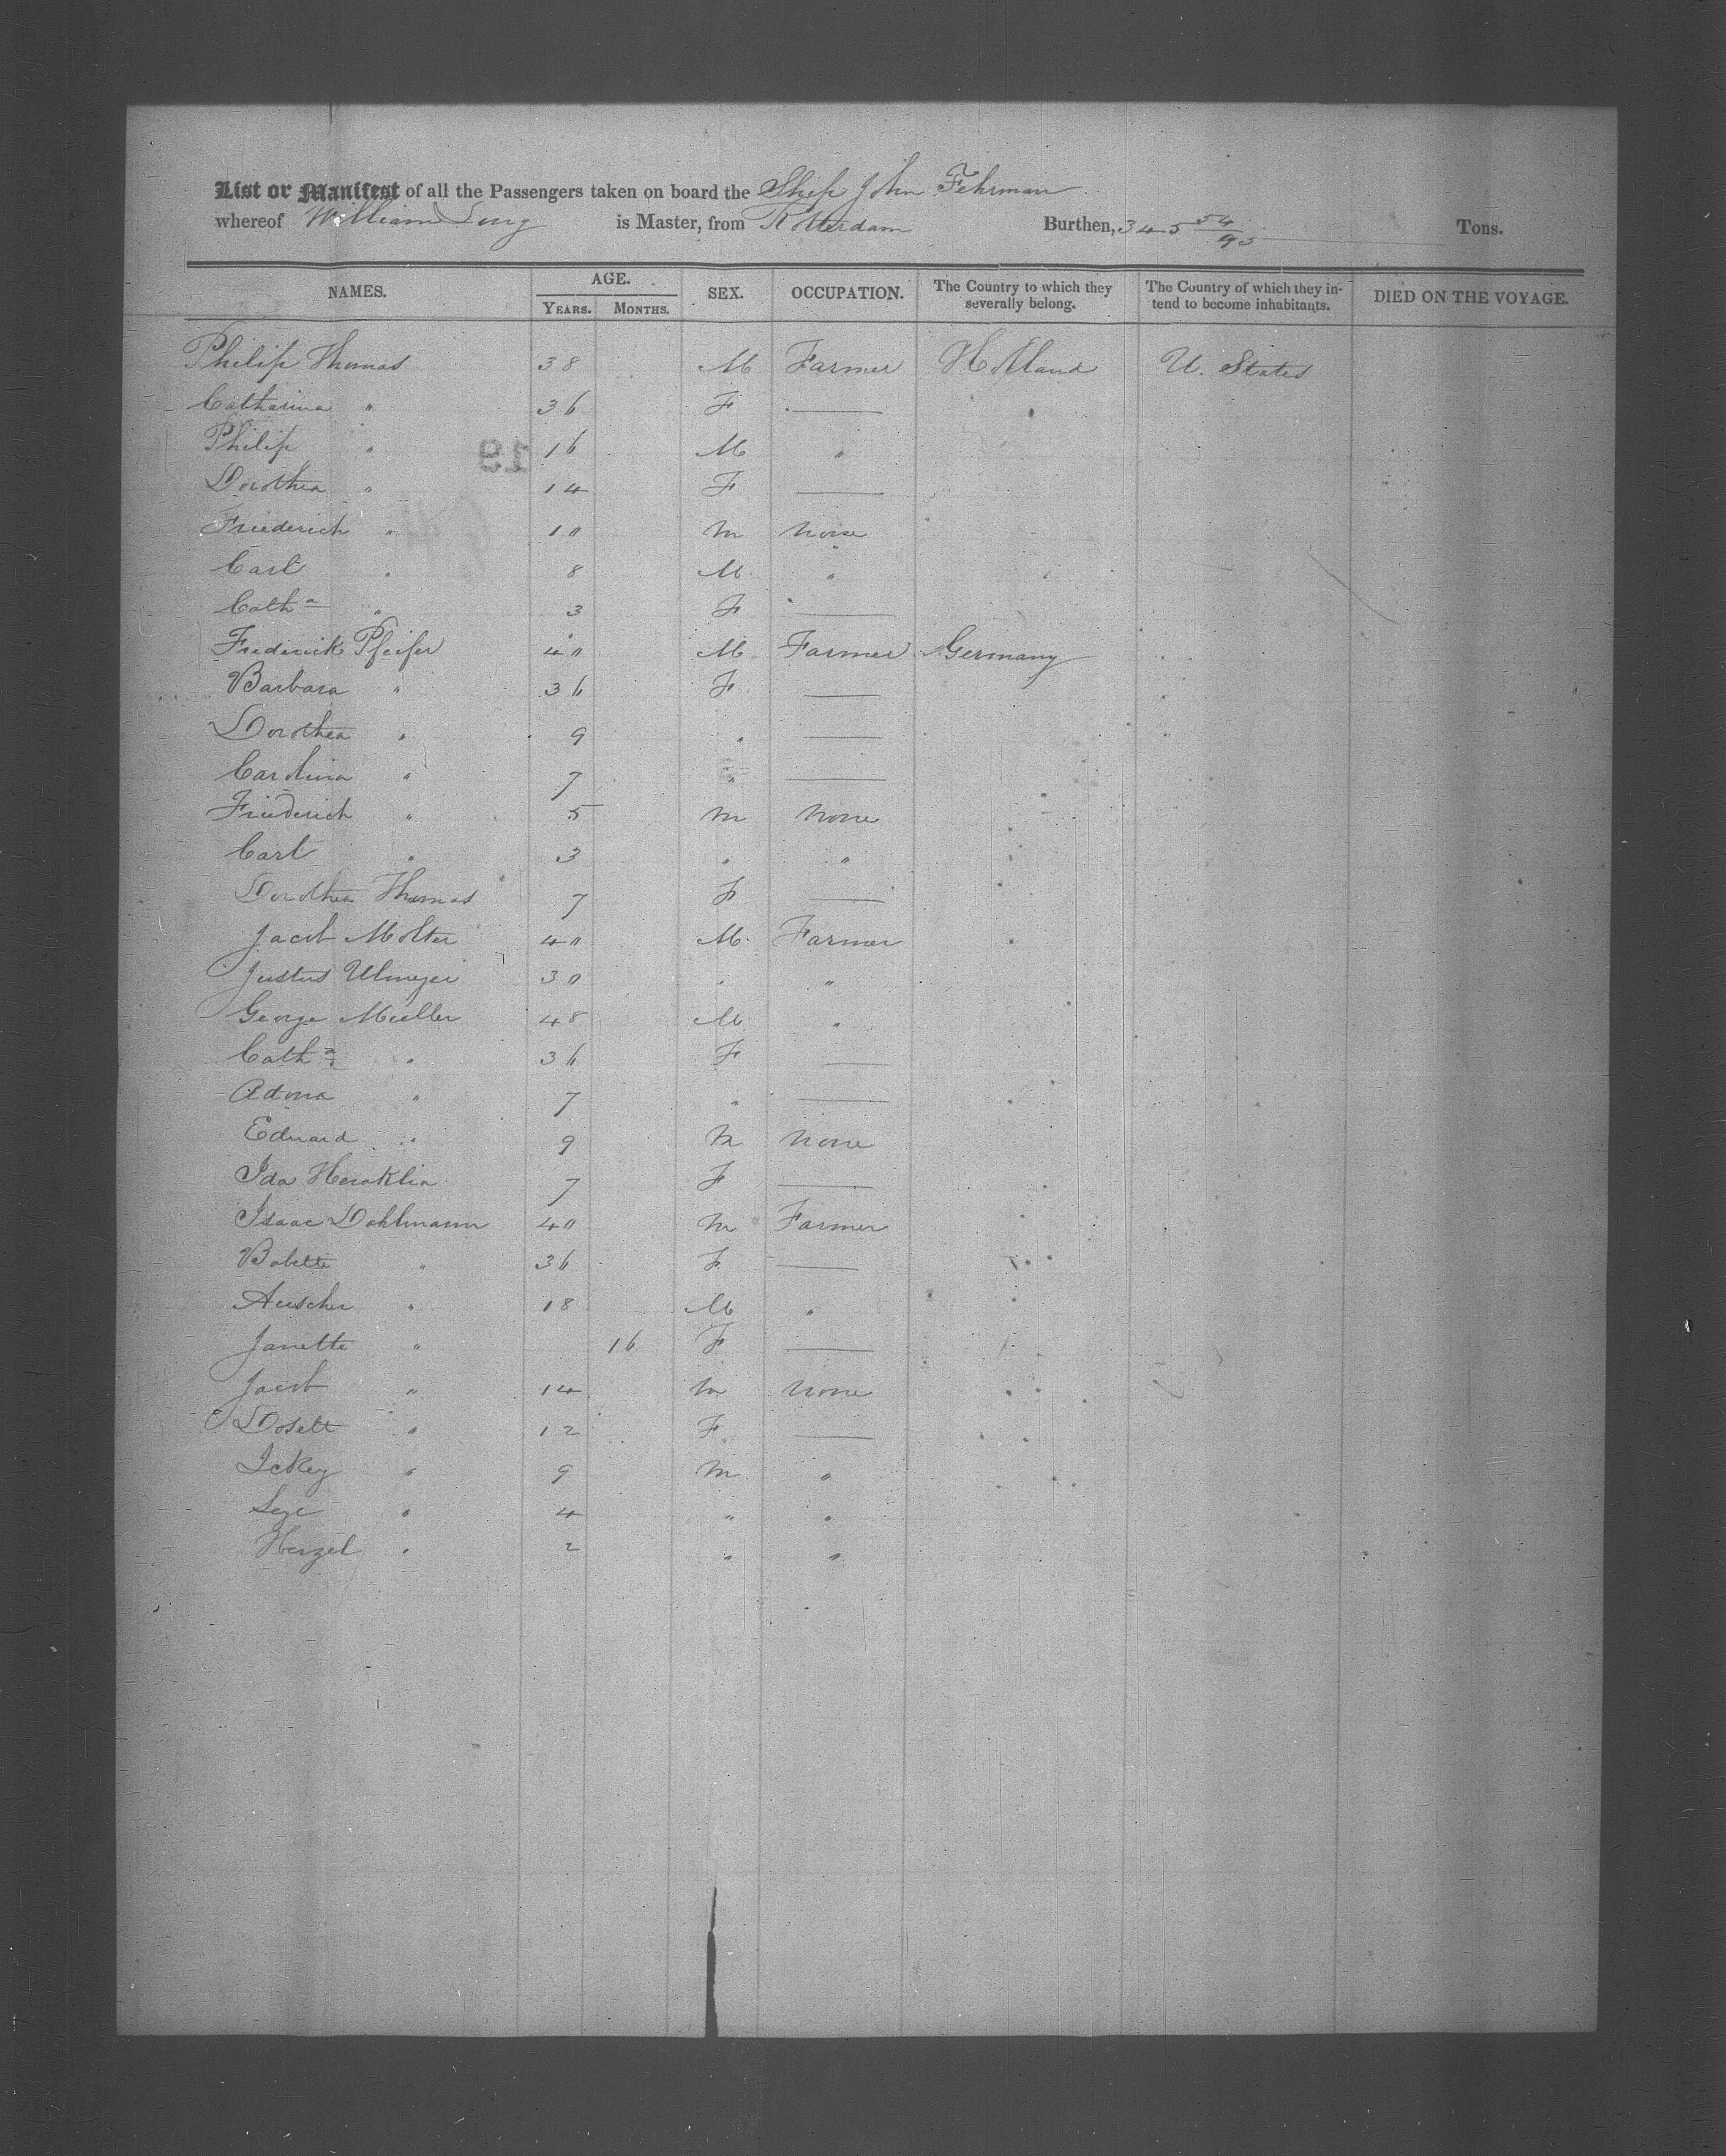 List or Manifest of all the Passengers taken on board the Ship John Fehrman
whereof William Ling is Master, from Rotterdam Burthen, 345 54/95 Tons.
NAMES. AGE. YEARS. MONTHS. SEX. OCCUPATION. The Country to which they severally belong. The Country of which they intend to become inhabitants. DIED ON THE VOYAGE.
Philip Thomas 38 M Farmer Holland U. States
Catharina " 36 F —
Philip " 16 M "
Dorothea " 14 F —
Friederich " 10 M None
Carl " 8 M "
Cath^a " 3 F —
Frederick Pfeifer 40 M Farmer Germany
Barbara " 36 F —
Dorothea " 9 " —
Carolina " 7 " —
Friederich " 5 M None
Carl " 3 " "
Dorothea Thomas 7 F —
Jacob Molter 40 M Farmer
Justus Ulmeyer 30 " "
George Mueller 48 M "
Cath^a " 36 F —
Adona " 7 " —
Eduard " 9 M None
Ida Heraklia 7 F —
Isaac Dahlmann 40 M Farmer
Babette " 36 F —
Auscher " 18 M "
Janette " 16 F —
Jacob " 14 M None
Dosett " 12 F —
Ickey " 9 M "
" 4 " "
Herzel " 2 " "
19